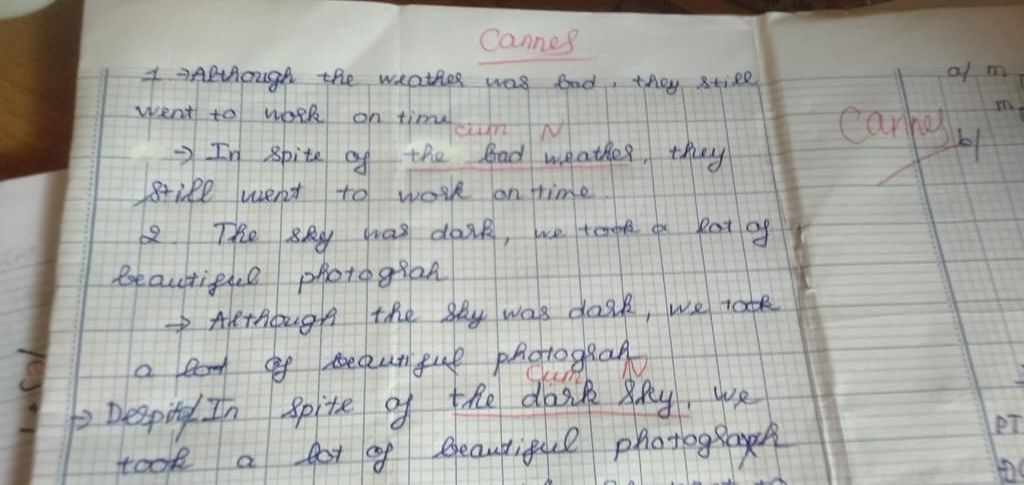 Cannes
1 → Although the weather was bad, they still
went to work on time
cum N
→ In spite of the bad weather, they
still went to work on time.
2 The sky was dark, we took a lot of
beautiful photograh
→ Although the sky was dark, we took
a lot of beautiful photograh
cum N
→ Despite/In spite of the dark sky, we
took a lot of beautiful photograph
Cannes
a/ m
m
b/
PT